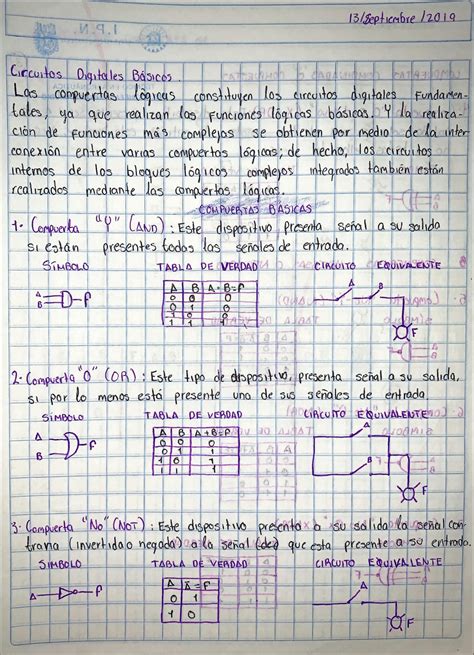 13/Septiembre/2019
Circuitos Digitales Básicos.
Las compuertas lógicas constituyen los circuitos digitales fundamen-
tales, ya que realizan las funciones lógicas básicas. Y la realiza-
ción de funciones más complejas se obtienen por medio de la inter
conexión entre varias compuertas lógicas; de hecho, los circuitos
internos de los bloques lógicos complejos integrados también están
realizados mediante las compuertas lógicas.
COMPUERTAS BÁSICAS
1.- Compuerta "Y" (AND): Este dispositivo presenta señal a su salida
si están presentes todas las señales de entrada.
SÍMBOLO TABLA DE VERDAD CIRCUITO EQUIVALENTE
A B A·B=F
0 0 0
0 1 0
1 0 0
1 1 1
A
B
F
A B
F
2.- Compuerta "O" (OR): Este tipo de dispositivo, presenta señal a su salida,
si por lo menos está presente una de sus señales de entrada.
SÍMBOLO TABLA DE VERDAD CIRCUITO EQUIVALENTE
A B A+B=F
0 0 0
0 1 1
1 0 1
1 1 1
A
B
F
A
B
F
3.- Compuerta "No" (NOT): Este dispositivo presenta a su salida la señal con-
traria (invertida o negada) a la señal (de) que esta presente a su entrada.
SÍMBOLO TABLA DE VERDAD CIRCUITO EQUIVALENTE
A Ā=F
0 1
1 0
A
F
A
F